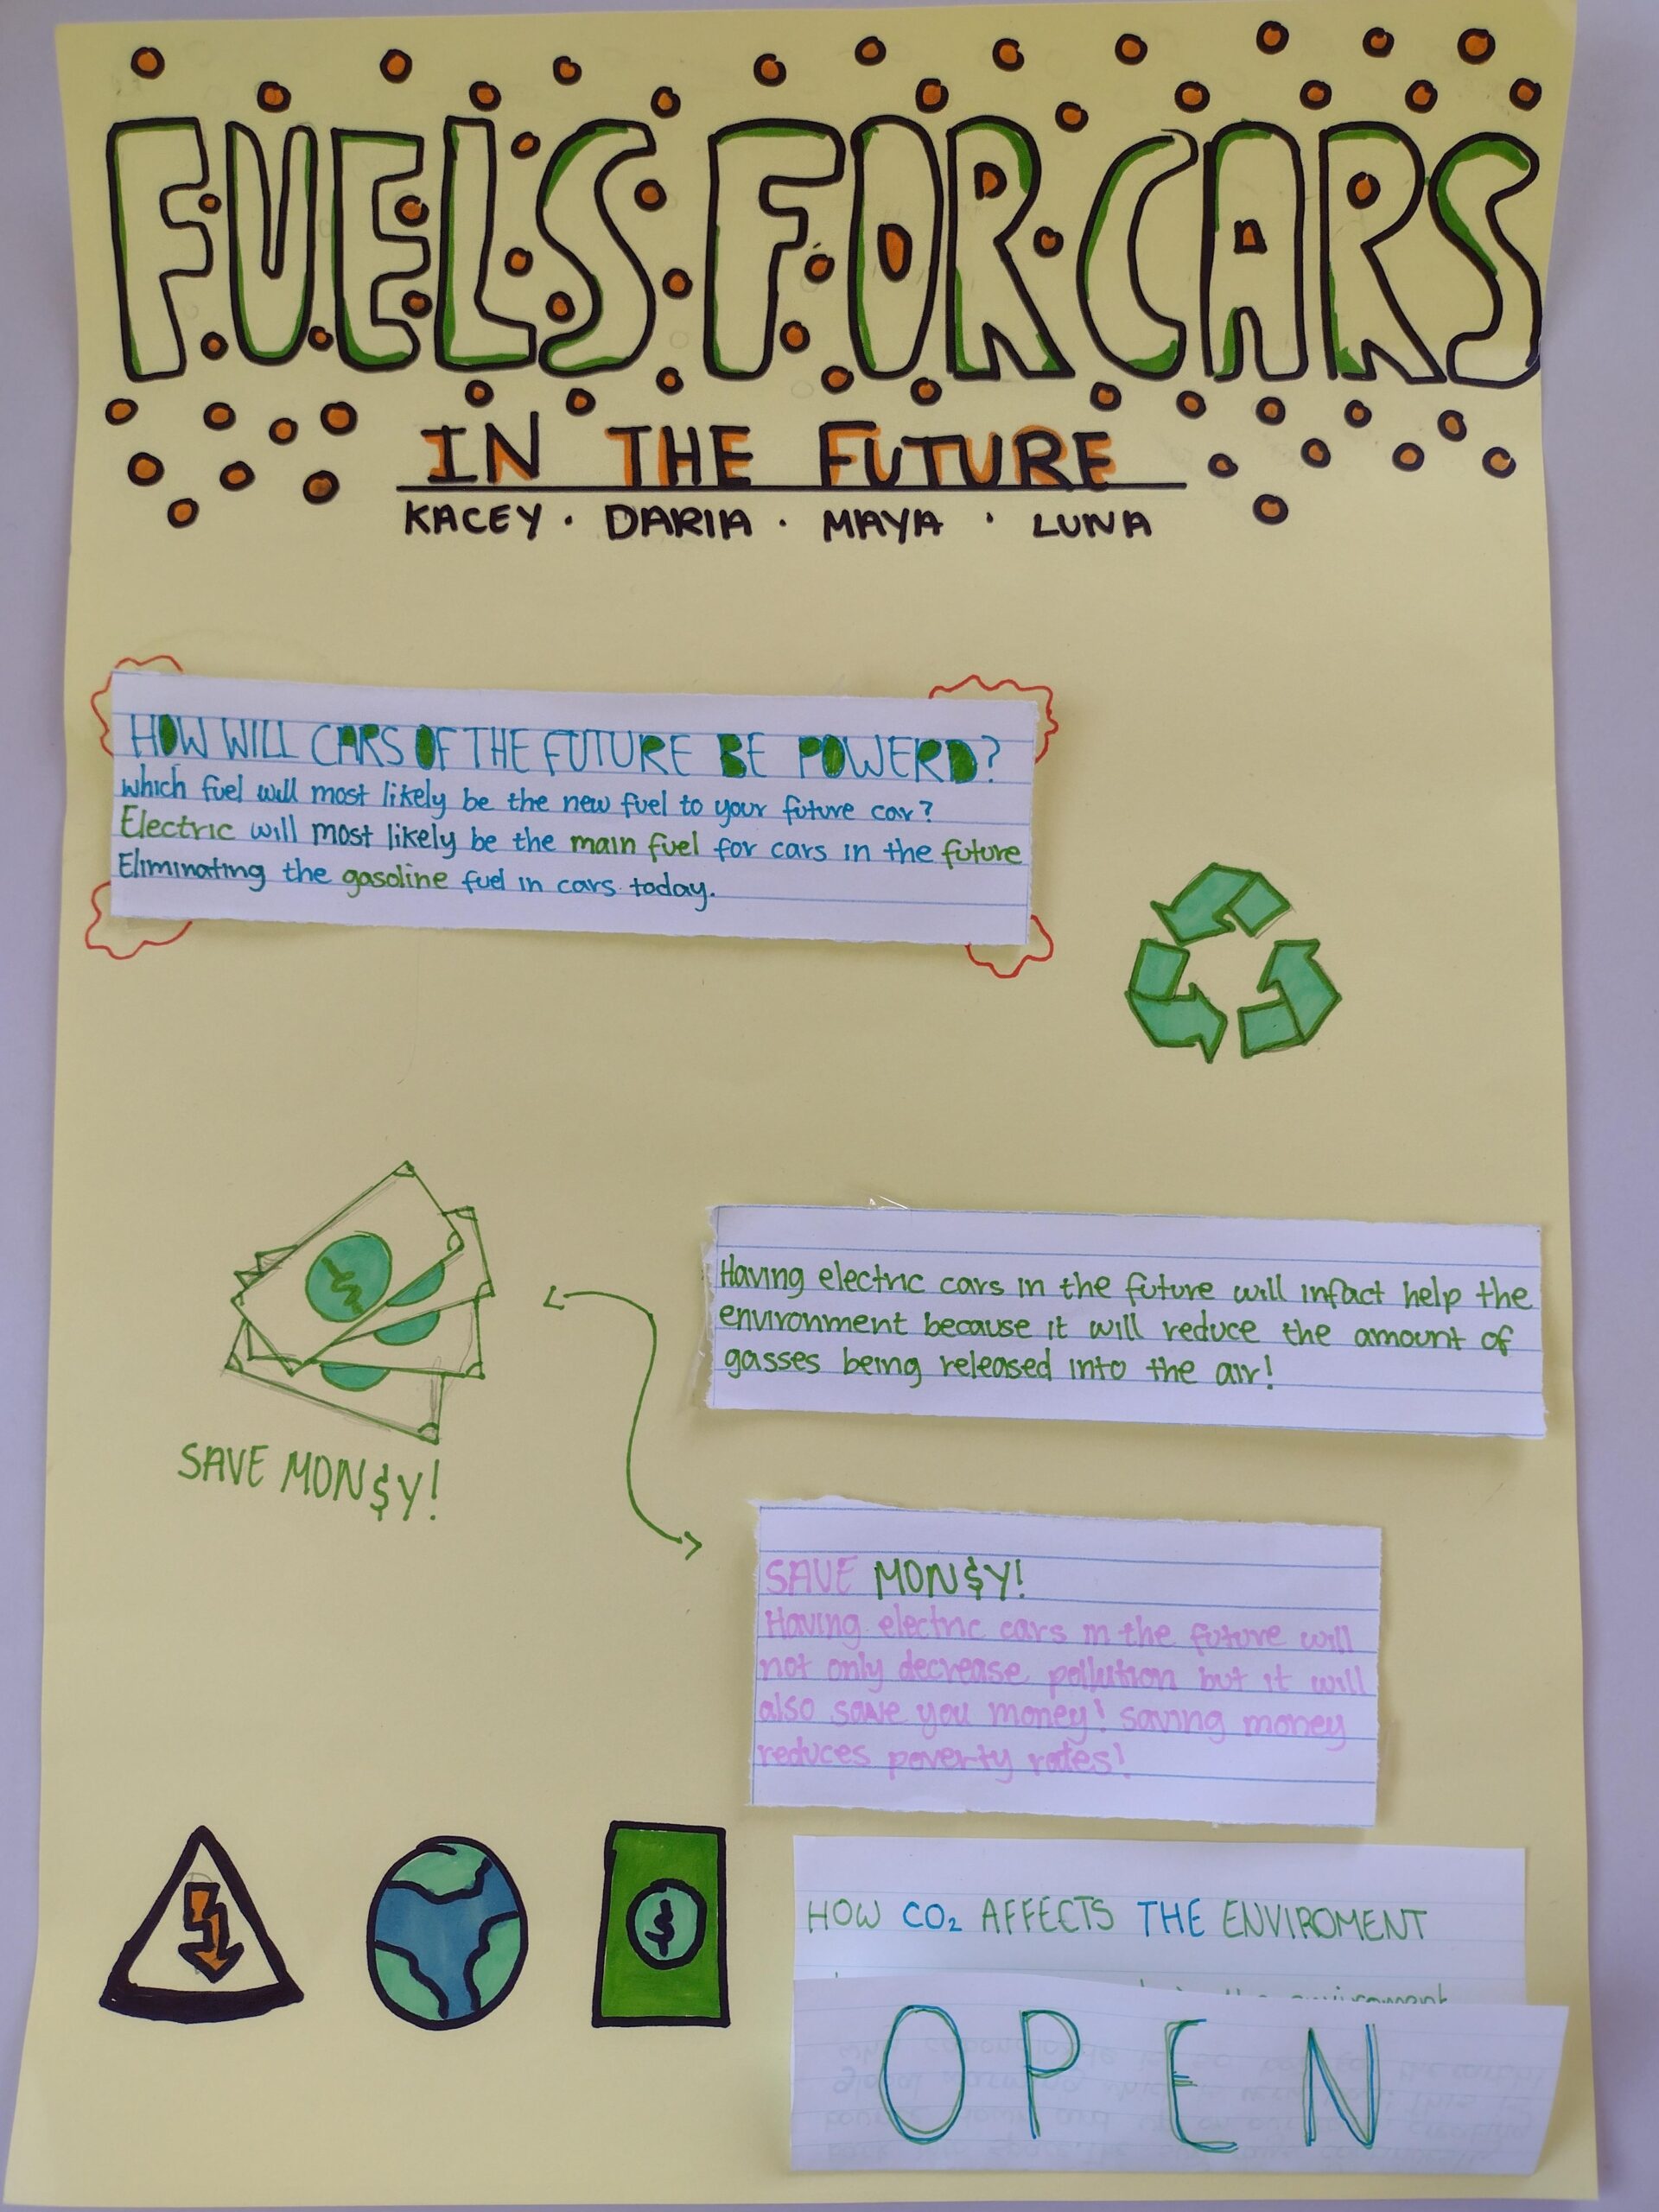 FUELS FOR CARS
IN THE FUTURE
KACEY · DARIIA · MAYA · LUNA
HOW WILL CARS OF THE FUTURE BE POWERD?
which fuel will most likely be the new fuel to your future car?
Electric will most likely be the main fuel for cars in the future
Eliminating the gasoline fuel in cars today.
Having electric cars in the future will infact help the
environment because it will reduce the amount of
gasses being released into the air!
SAVE MON$Y!
SAVE MON$Y!
Having electric cars in the future will
not only decrease pollution but it will
also save you money! saving money
reduces poverty rates!
$
HOW CO₂ AFFECTS THE ENVIROMENT
OPEN